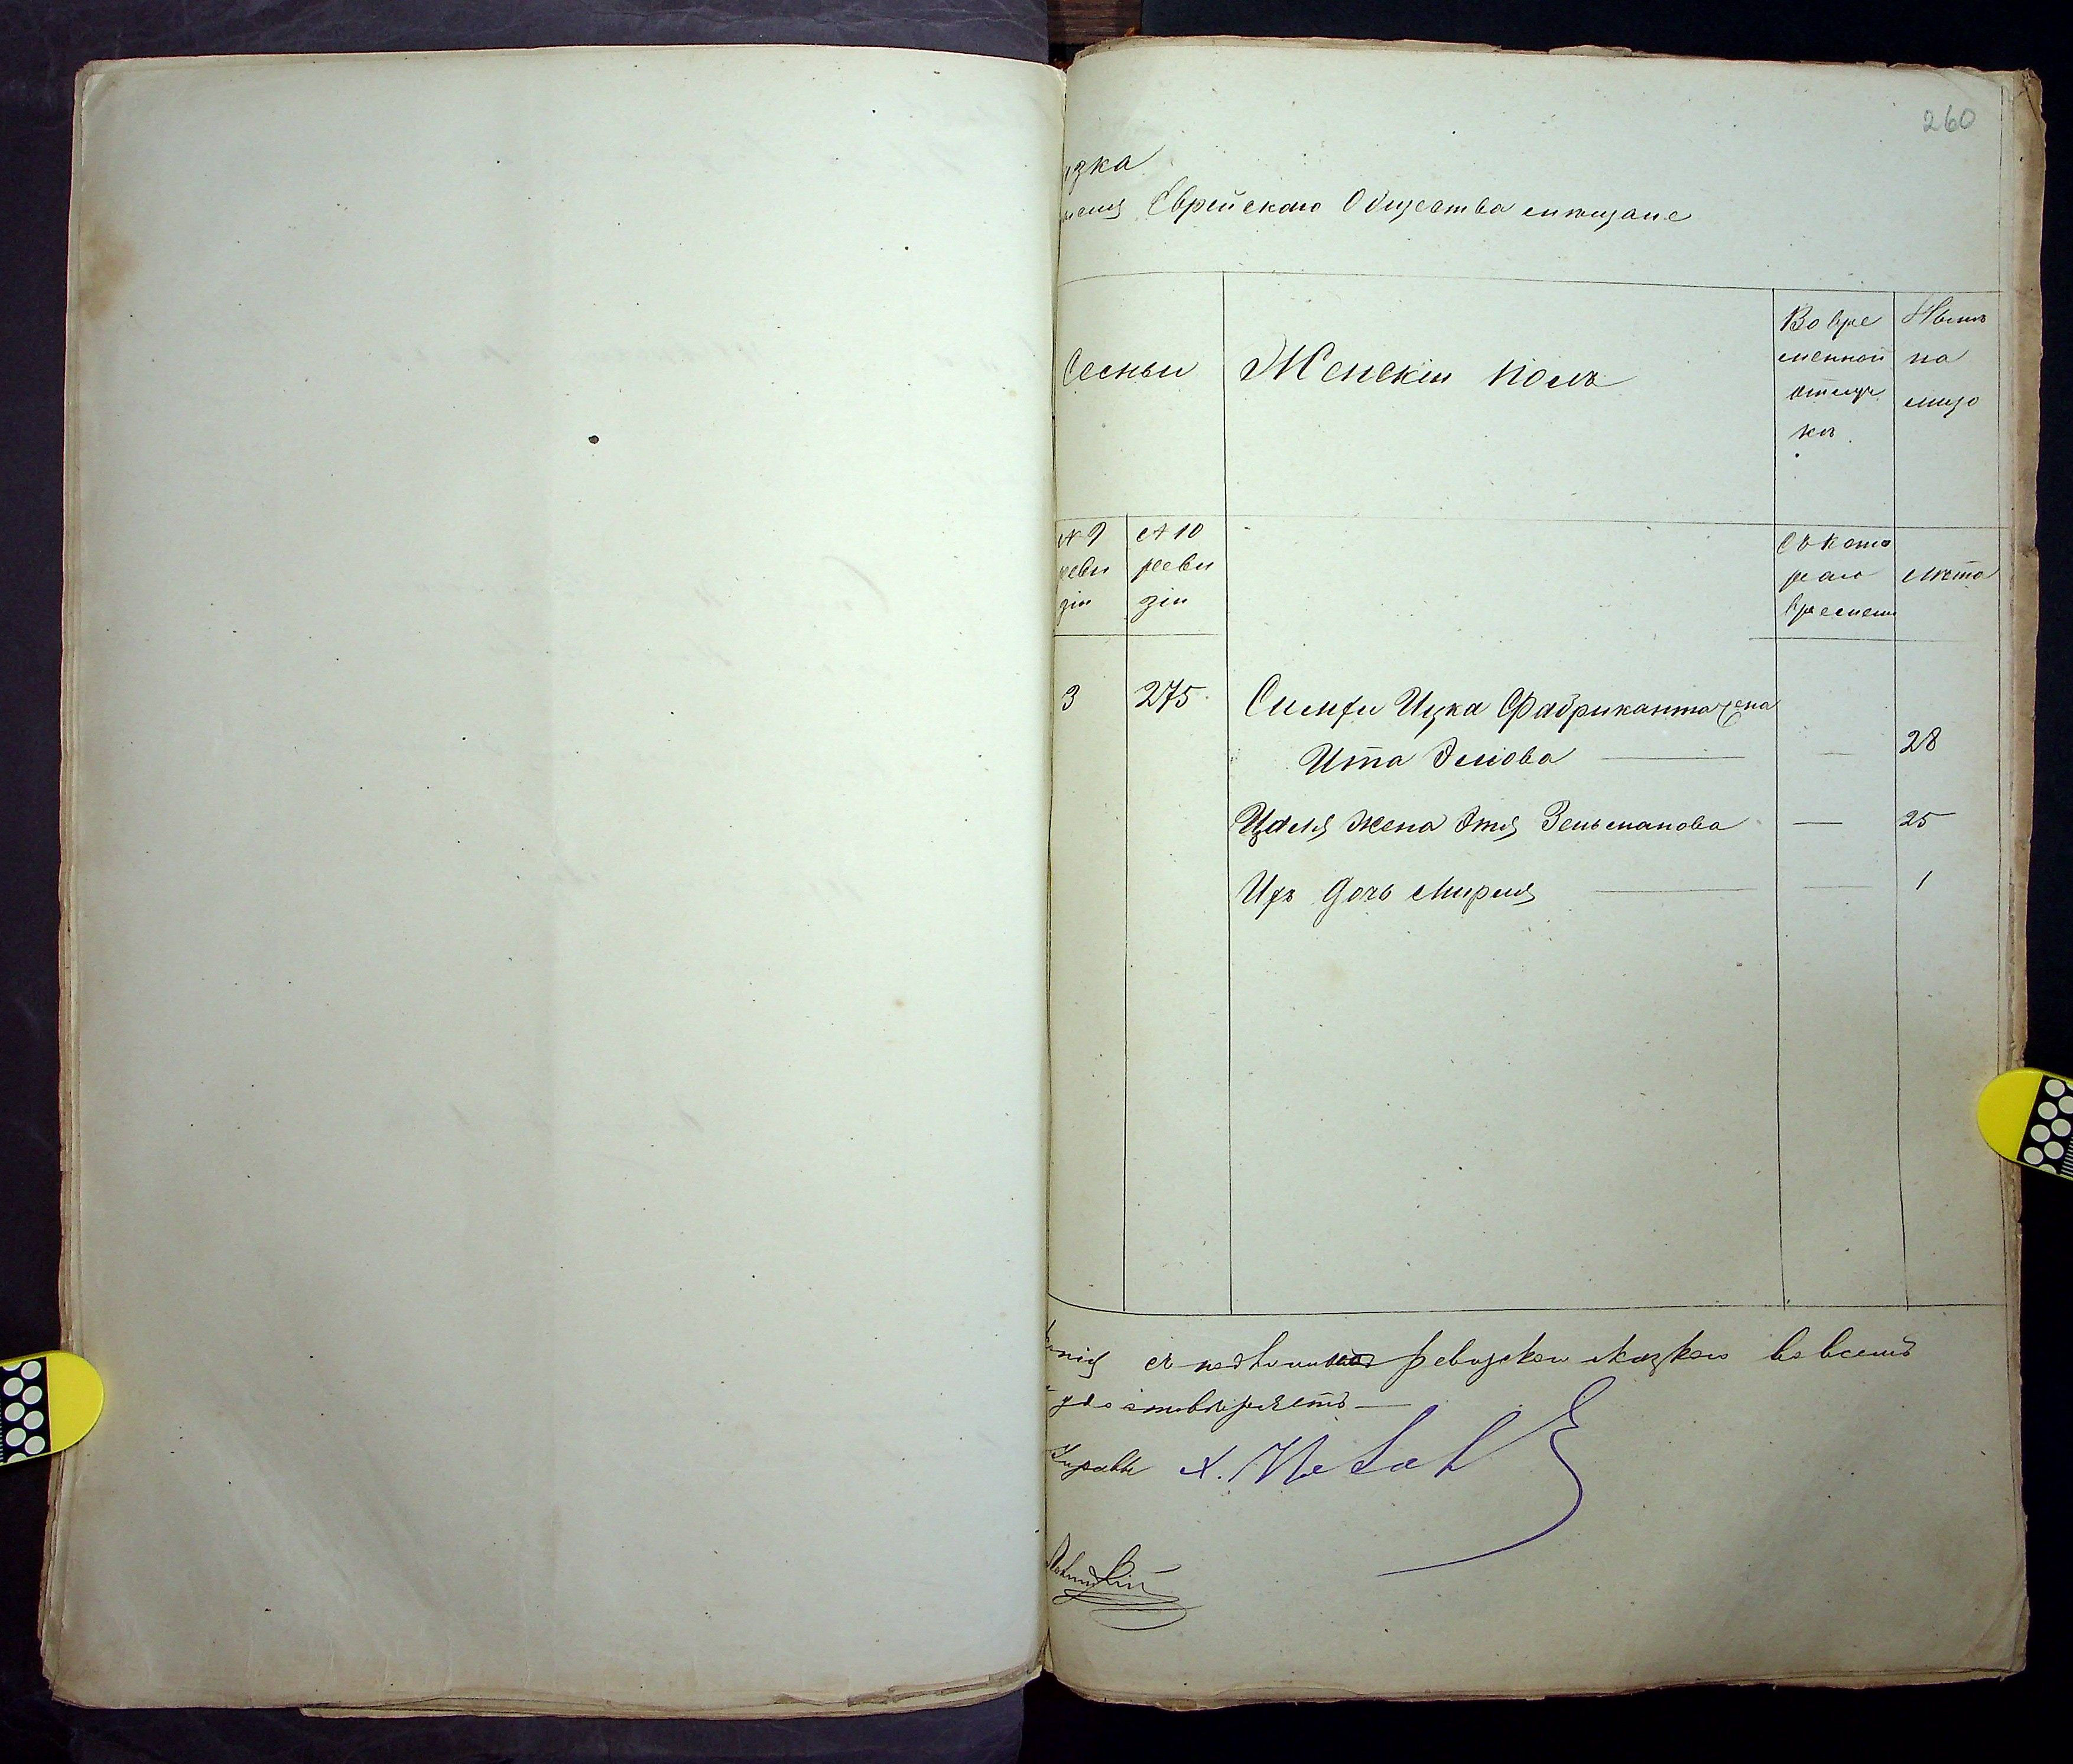 260
изка
Еврейскаго Общества мѣщане
Семьи
Женскій полъ
Во вре
менной
отлуч
кѣ.
Нынѣ
на
лицо
№ 9
реви
зіи
№ 10
реви
зіи
Съ кото
раго
времени
лѣта
3
275
Симхи Ицка Фабриканта жена
Ита Эліова — — 28
Цаля жена Этя Зельманова — 25
Ихъ дочь Мирля — — 1
съ подлинною ревизскою сказкою во всемъ
удостовѣряетъ —
Управы